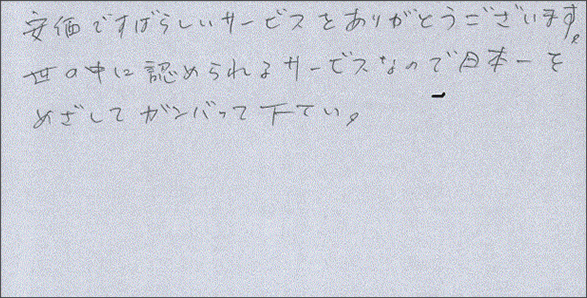 安価ですばらしいサービスをありがとうございます。
世の中に認められるサービスなので日本一を
めざしてガンバって下てい。